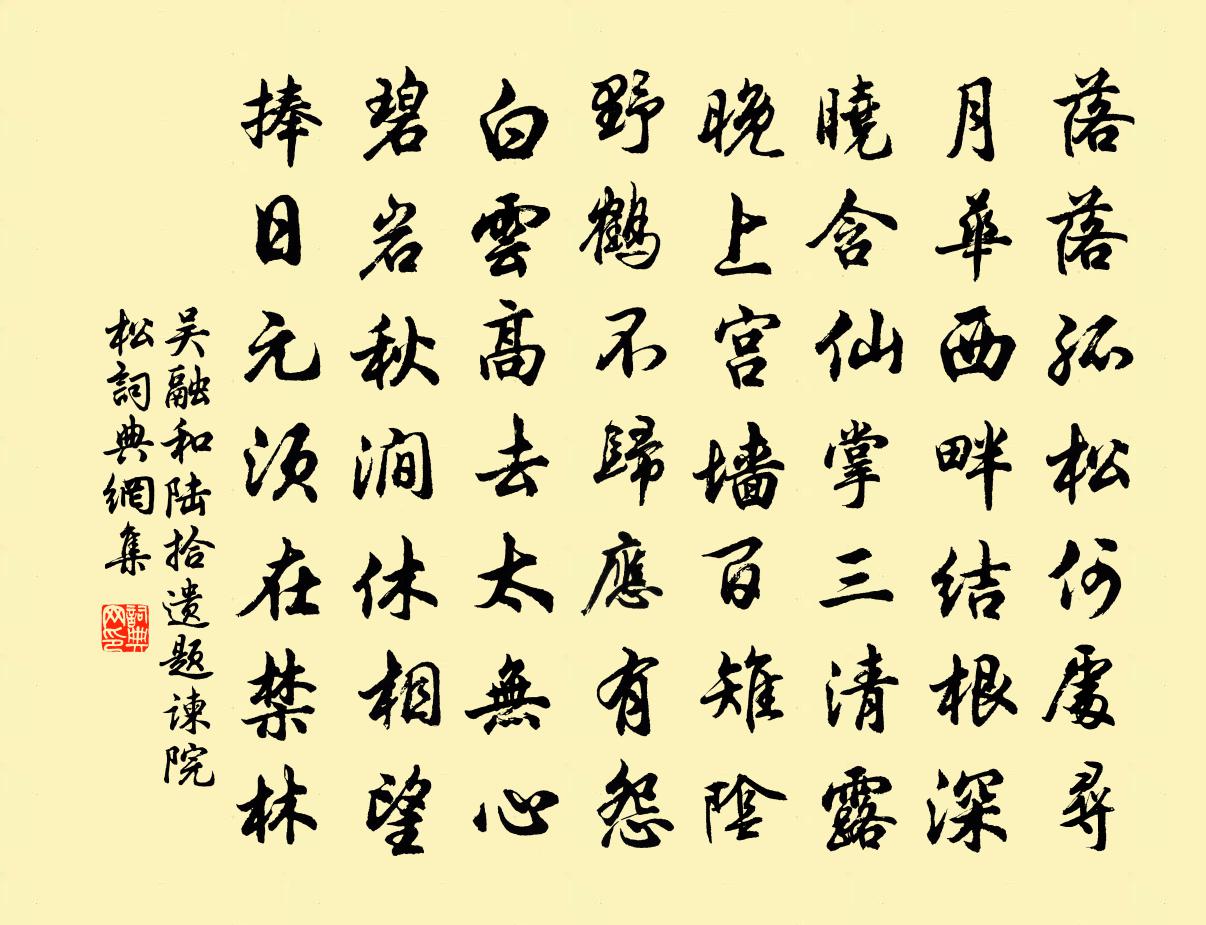 落落孤松何處尋
月華西畔結根深
曉含仙掌三清露
晚上宮墙百雉陰
野鶴不歸應有怨
白雲高去太無心
碧岩秋澗休相望
捧日元須在禁林
吴融和陆拾遗题谏院
松詞典網集
詞典网印